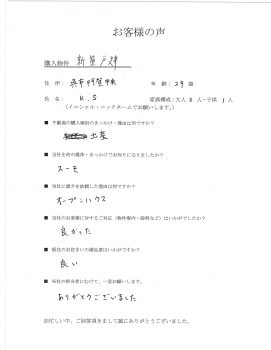 お客様の声
購入物件 新築戸建
住所: 呉市阿賀中央 年齢: 29歳
氏名: K.S 家族構成: 大人2人・子供1人
(イニシャル・ニックネームでお願いします。)
■ 不動産の購入検討のきっかけ・理由は何ですか?
出産
■ 当社を何の媒体・きっかけでお知りになりましたか?
スーモ
■ 当社に仲介を依頼した理由は何ですか?
オープンハウス
■ 当社のお客様に対するご対応(物件案内・説明など)はいかがでしたか?
良かった
■ 現在のお住まいの満足度はいかがですか?
良い
■ 当社の担当者にむけて、一言お願いします。
ありがとうございました
お忙しい中、ご回答頂きまして誠にありがとうございました。